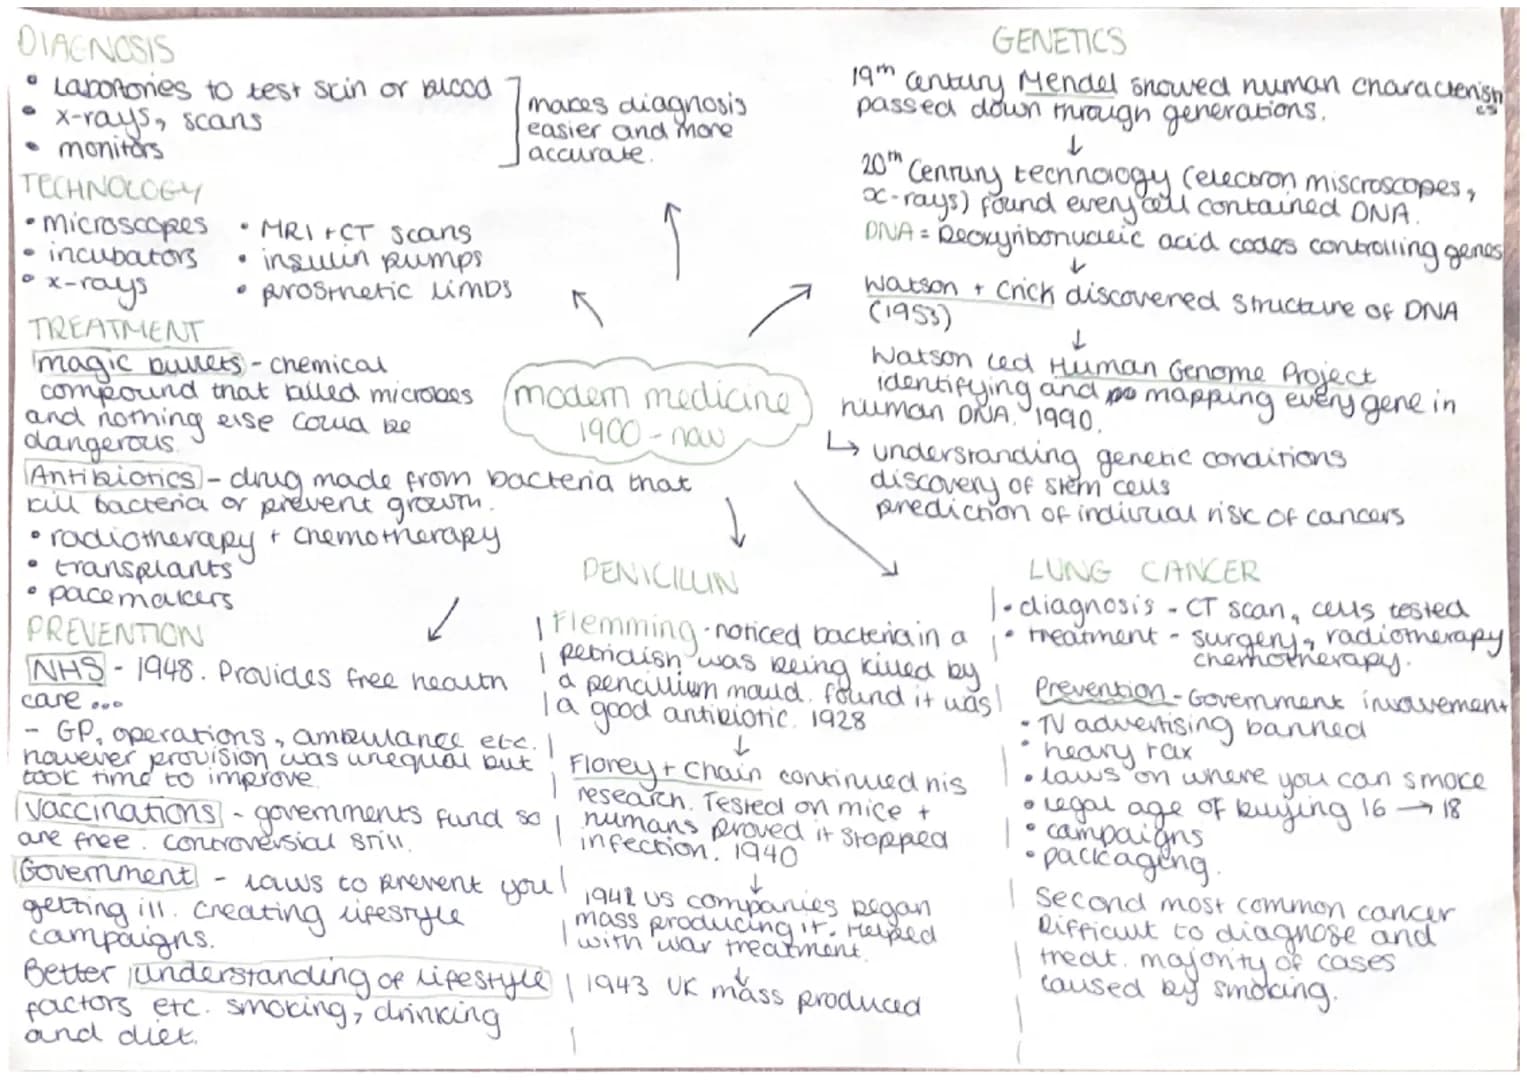 DIAGNOSIS
• Laboratories to test skin or blood
• x-rays, scans
• monitors
makes diagnosis
easier and more
accurate.
TECHNOLOGY
• microscopes
• incubators
• x-rays
• MRI + CT scans
• insulin pumps
• prosthetic limbs
TREATMENT
magic bullets - chemical
compound that killed microbes
and nothing else could be
dangerous.
Antibiotics - drug made from bacteria that
kill bacteria or prevent growth.
• radiotherapy + chemotherapy
• transplants
• pacemakers
PREVENTION
NHS - 1948. Provides free health
care ...
- GP, operations, ambulance etc.
however provision was unequal but
took time to improve.
Vaccinations - governments fund so
are free. controversial still.
Government - laws to prevent you
getting ill. Creating lifestyle
campaigns.
Better understanding of lifestyle
factors etc. smoking, drinking
and diet.
modern medicine
1900 - now
PENICILLIN
Flemming - noticed bacteria in a
petridish was being killed by
a pencillium mould. found it was
a good antibiotic. 1928
↓
Florey + Chain continued his
research. Tested on mice +
humans proved it stopped
infection. 1940
↓
1942 US companies began
mass producing it. Helped
with war treatment.
↓
1943 UK mass produced
GENETICS
19th Century Mendel showed human characteristics
passed down through generations.
↓
20th Century technology (electron miscroscopes,
x-rays) found every cell contained DNA.
DNA = Deoxyribonucleic acid codes controlling genes
↓
Watson + Crick discovered structure of DNA
(1953)
↓
Watson led Human Genome Project
identifying and mapping every gene in
human DNA. 1990.
↳ understanding genetic conditions
discovery of stem cells
prediction of indiviual risk of cancers
LUNG CANCER
• diagnosis - CT scan, cells tested
• treatment - surgery, radiotherapy
chemotherapy.
Prevention - Government involvement
• TV advertising banned
• heavy tax
• laws on where you can smoke
• legal age of buying 16 → 18
• campaigns
• packaging.
Second most common cancer
Difficult to diagnose and
treat. majority of cases
caused by smoking.